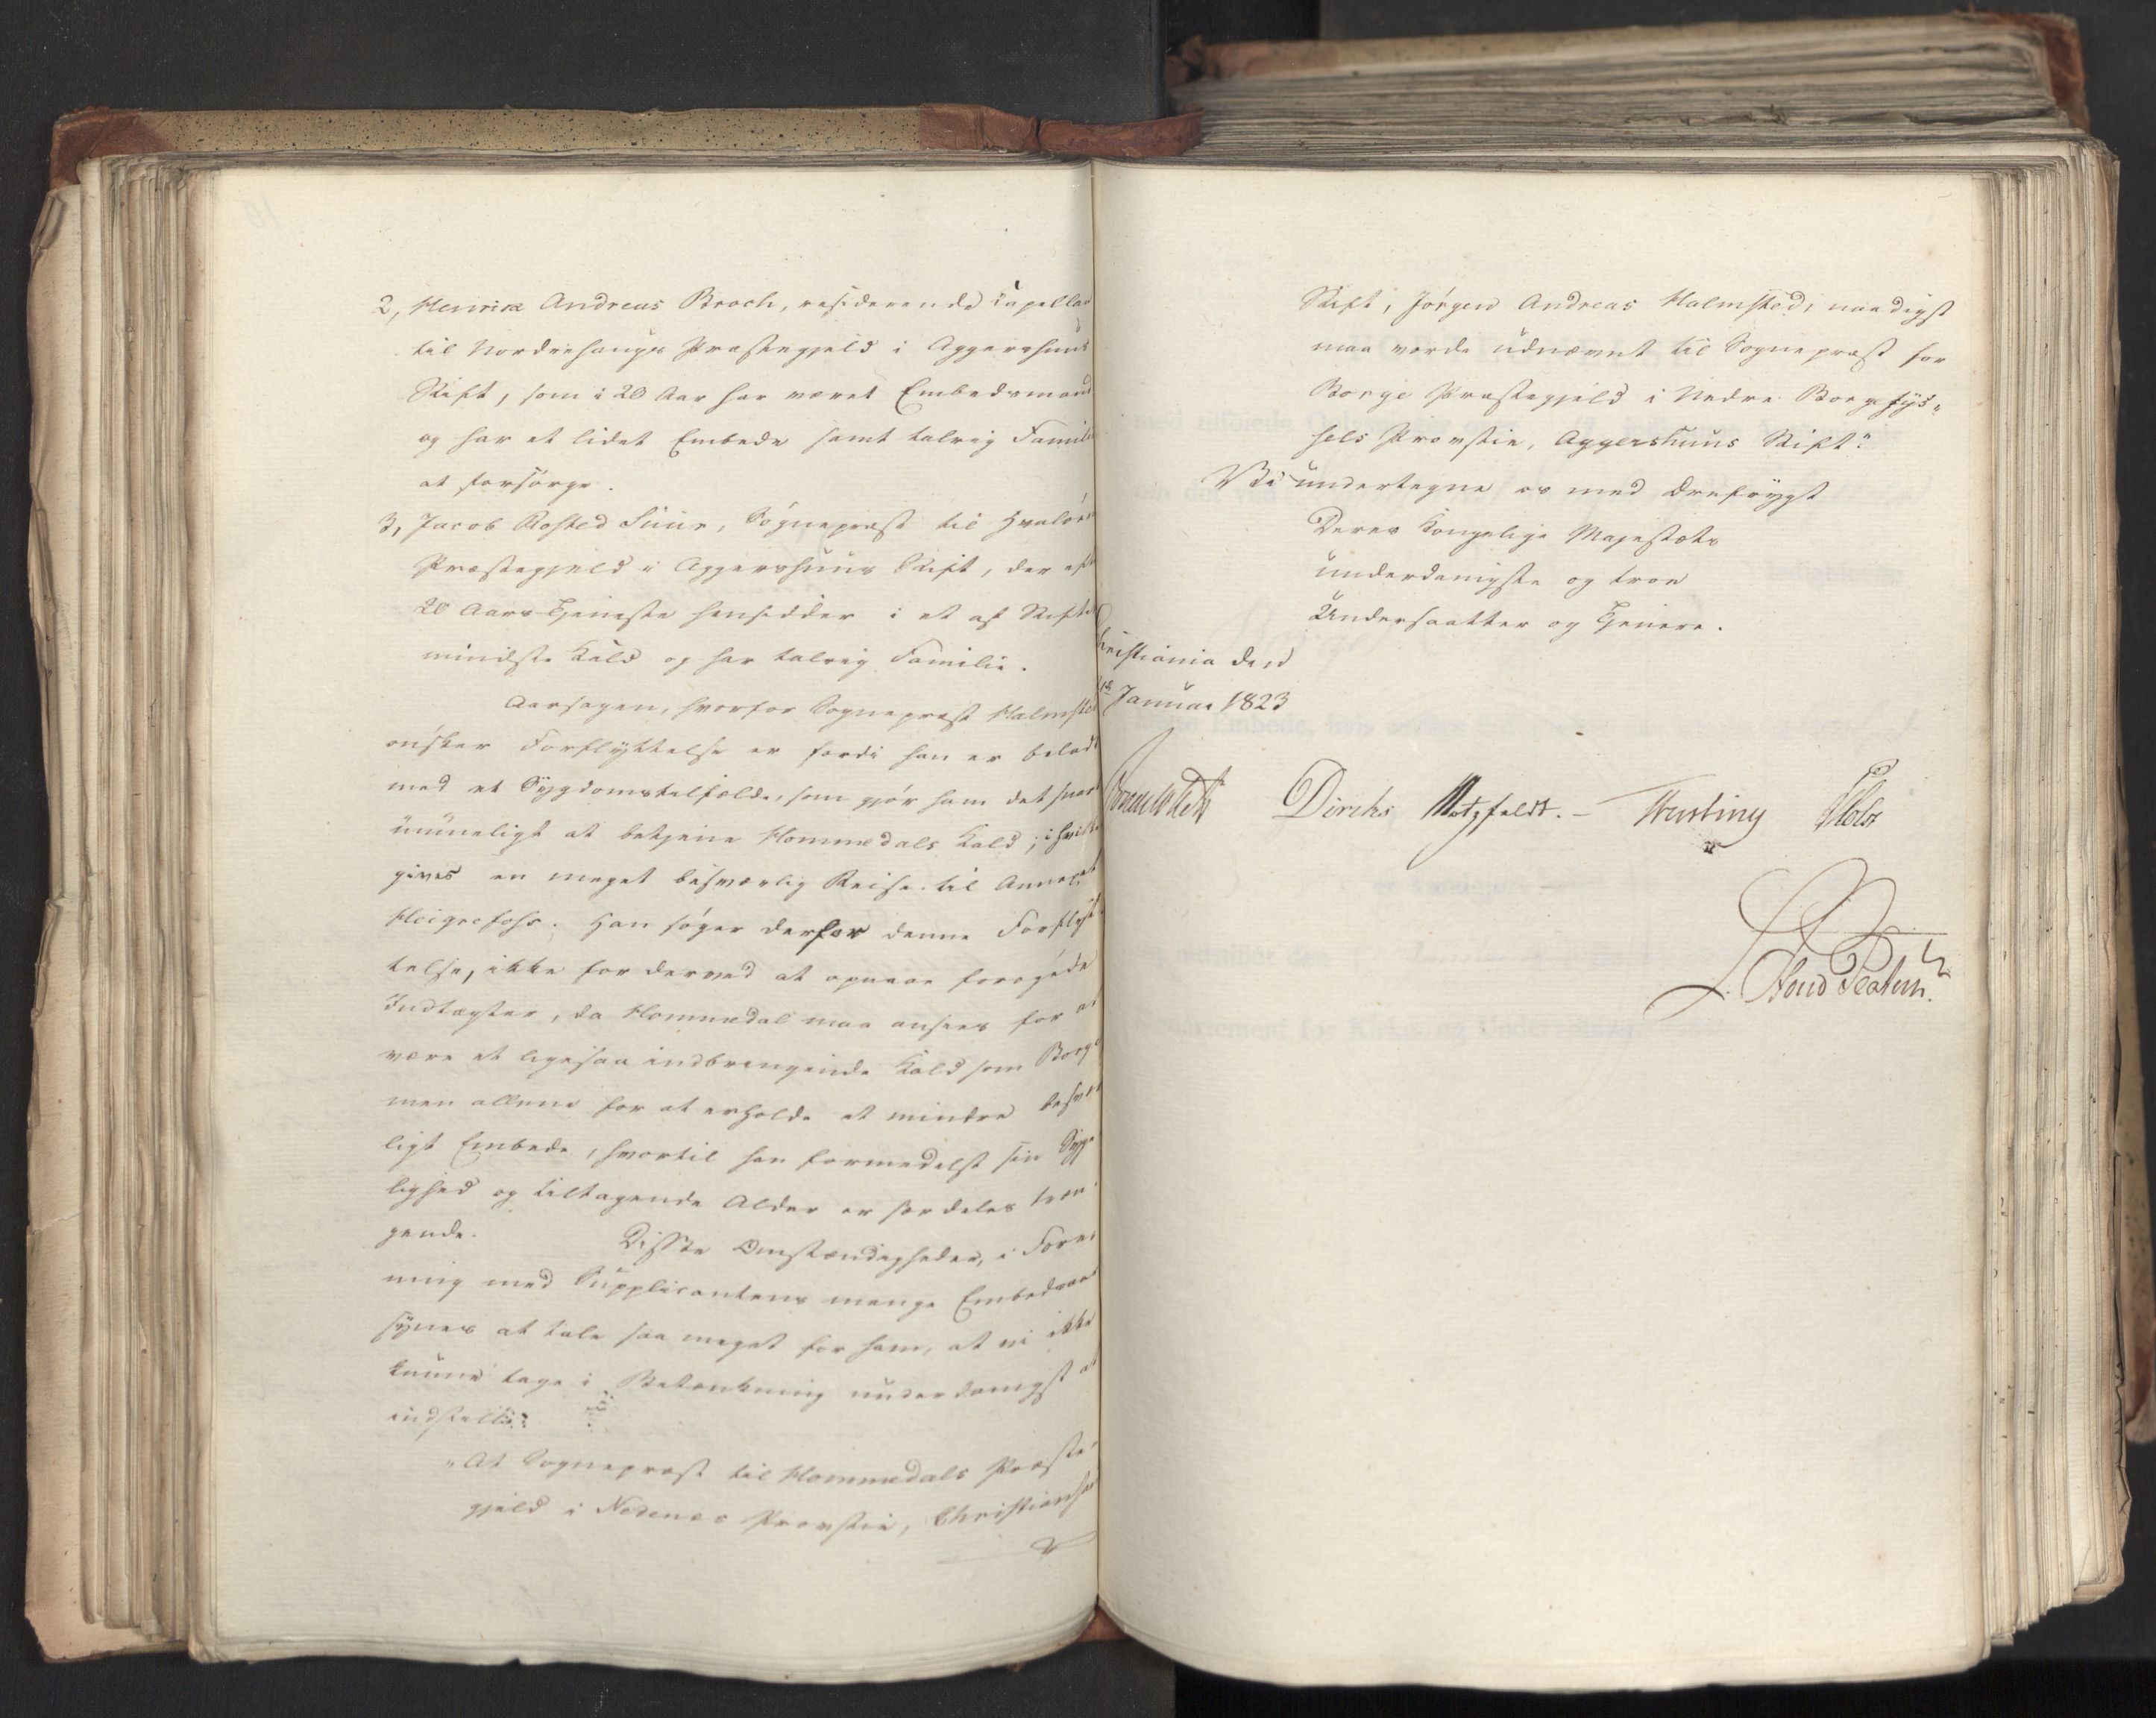 2, Henrik Andreas Broch, residerende Capellan
til Norderhougs Præstegjeld i Aggershuus
Stift, som i 20 Aar har været Embedsmand
og har et lidet Embede samt talrig Famili
at forsörge.
3, Jacob Rosted Suur, Sognepræst til Hvalöer
Præstegjeld i Aggershuus Stift, der eft
20 Aars Tjeneste hensidder i et af Stiftet
mindste Kald og har talrig Familie.
Aarsagen, hvorfor Sognepræst Halmsted
ønsker Forflyttelse er fordi han er belad
med et Sygdomstilfælde, som gjör ham det snart
umueligt at betjene Hommedals Kald; i hvilke
gives en meget besværlig Reise til Annexet
Heigrefoss. Han söger derfor denne Forflyt
telse, ikke for derved at opnaae forögede
Indtægter, da Hommedal maa ansees for at
være et ligesaa indbringende Kald som Borge
men allene for at erholde et mindre besvær
ligt Embede, hvortil han formedelst sin Syge
lighed og tiltagende Alder er særdeles træn
gende. Disse Omstændigheder, i Fore
ning med Supplicantens mange Embedsaar
synes at tale saa meget for ham, at vi ikke
kunne tage i Betænkning underdanigst at
indstille:
"At Sognepræst til Hommedals Præste
gjeld i Nedenes Provstie, Christiansa
Stift, Jörgen Andreas Halmsted, naadigst
maa vorde udnævnt til Sognepræst for
Borge Præstegjeld i Nedre Borgesys"
sels Provstie, Aggershuus Stift."
Vi undertegne os med Ærefrygt
Deres Kongelige Majestæts
underdanigste og troe
Undersaatter og Tjenere.
Christiania den
Januar 1823
Sommerhielm Diriks Motzfeldt. Treschow Holst